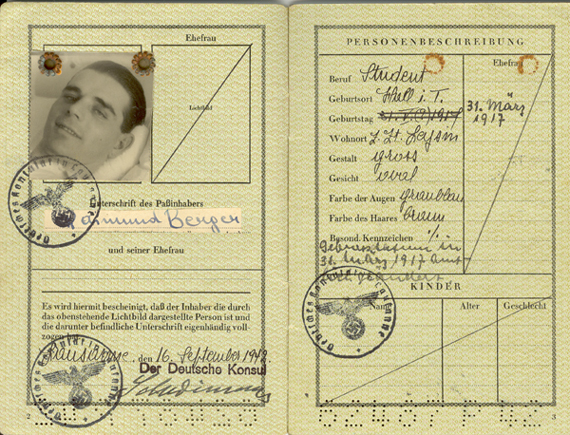 Ehefrau
Lichtbild
Unterschrift des Paßinhabers
Berger
und seiner Ehefrau
Es wird hiermit bescheinigt, daß der Inhaber die durch
das obenstehende Lichtbild dargestellte Person ist und
die darunter befindliche Unterschrift eigenhändig voll-
zogen hat.
Lausanne, den 16. September 1942
Der Deutsche Konsul
2
PERSONENBESCHREIBUNG
Ehefrau
Beruf Student
Geburtsort Hall i. T.
Geburtstag 31. März
1917
Wohnort z. Zt. Leysin
Gestalt gross
Gesicht oval
Farbe der Augen graublau
Farbe des Haares braun
Besond. Kennzeichen %
Geburtsdatum in
31. März 1917 amt-
lich geändert
KINDER
Name Alter Geschlecht
3